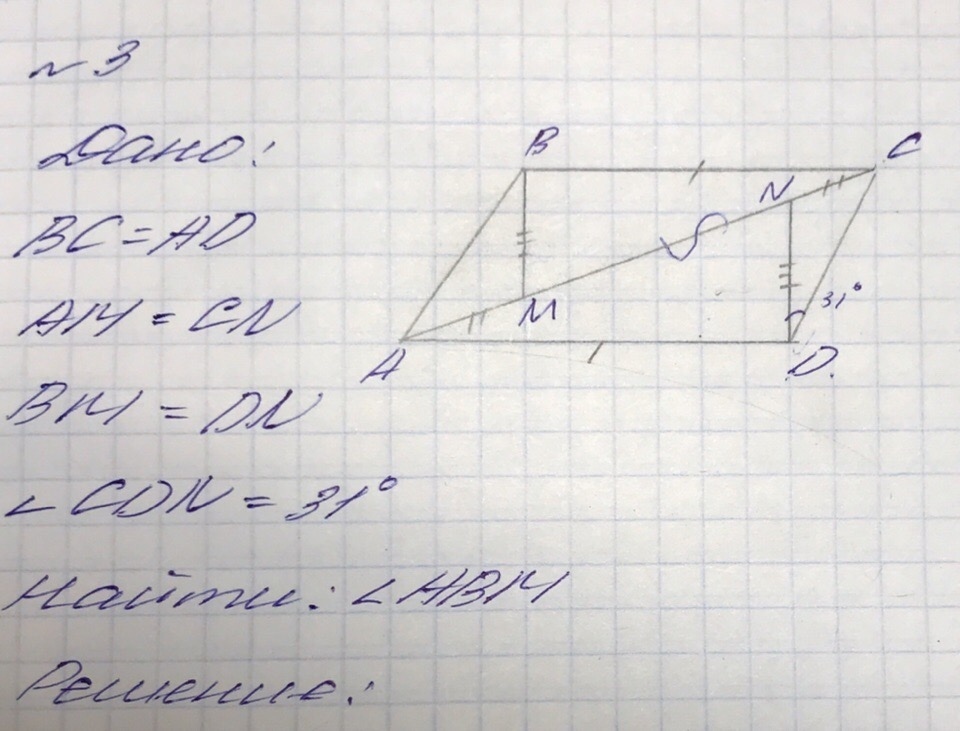 №3
Дано:
BC = AD
AM = CN
BM = DN
∠CDN = 31°
Найти: ∠ABM
Решение:
B
C
N
31°
M
A
D.